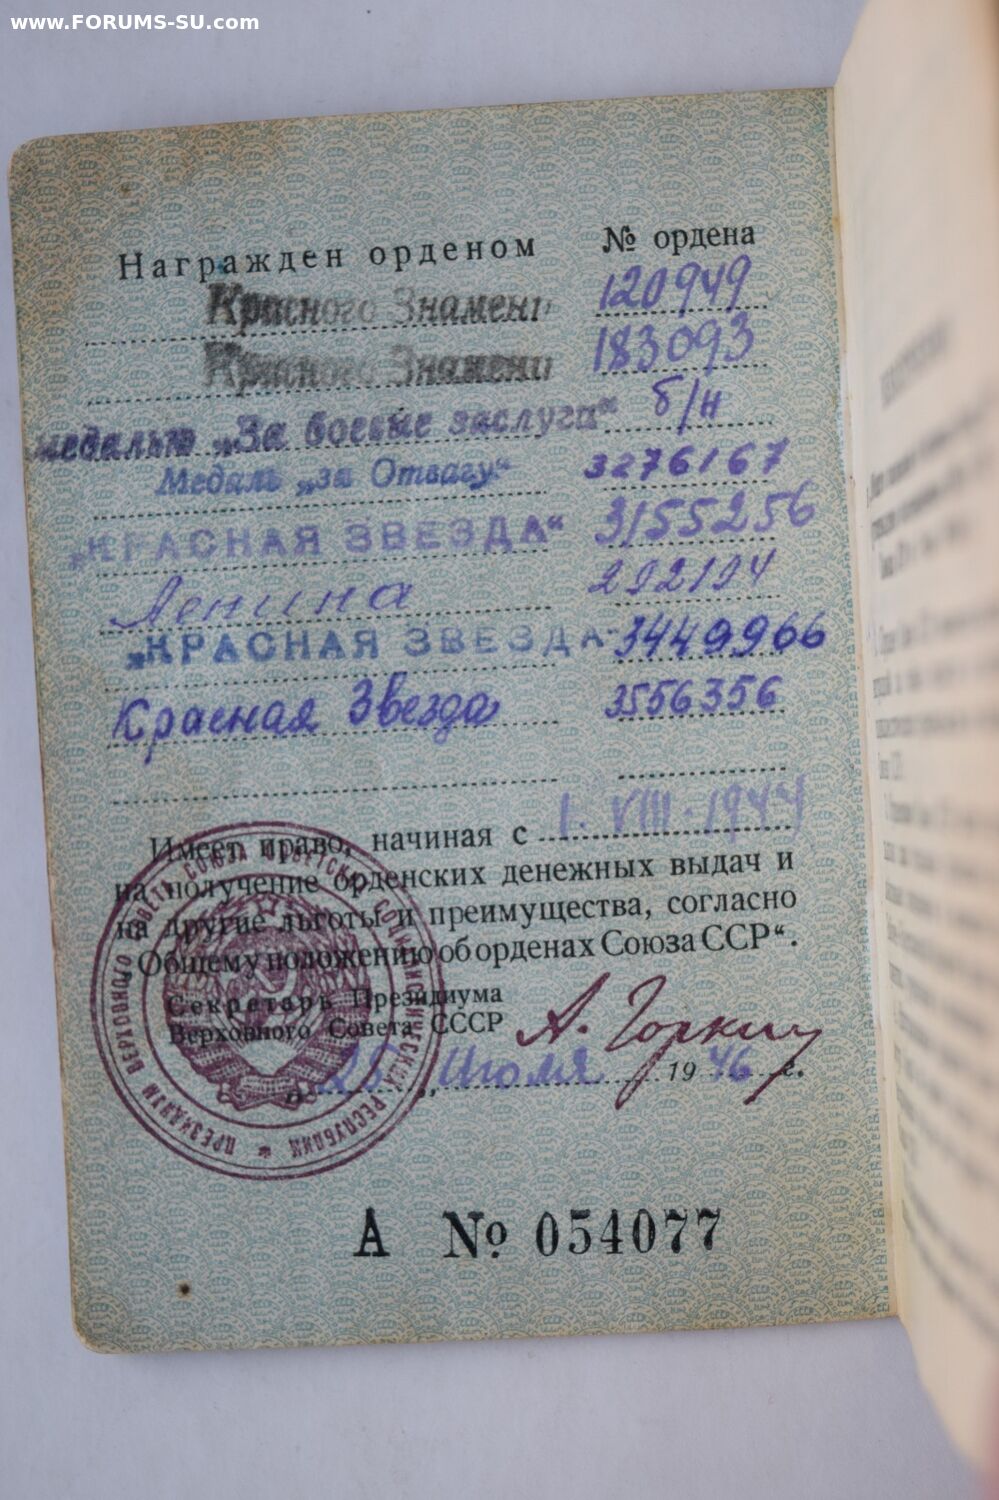 www.FORUMS-SU.com
Награжден орденом № ордена
Красного Знамени 120949
Красного Знамени 183093
медалью „За боевые заслуги“ б/н
Медаль „за Отвагу“ 3276167
„КРАСНАЯ ЗВЕЗДА“ 3155256
Ленина
„КРАСНАЯ ЗВЕЗДА“ 3449966
Красная Звезда 3556356
Имеет право, начиная с 1. VIII. 1944
на получение орденских денежных выдач и
на другие льготы и преимущества, согласно
„Общему положению об орденах Союза ССР“.
Секретарь Президиума
Верховного Совета СССР А. Горкин
„25„ Июля 1946 г.
ПРЕЗИДИУМ ВЕРХОВНОГО СОВЕТА СОЮЗА СОВЕТСКИХ СОЦИАЛИСТИЧЕСКИХ РЕСПУБЛИК
А № 054077